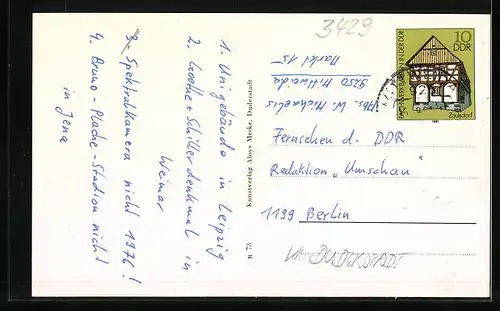 3429
10
DDR
FACHWERKBAUTEN IN DER DDR
Zaulsdorf
1981
Abs. W. Michaelis
9250 Mittweida
Markt 15
1. Unigebäude in Leipzig
2. Goethe-Schillerdenkmal in
Weimar
3. Spektralkamera nicht 1976!
4. Bruno-Plache-Stadion nicht
in Jena
Kunstverlag Aloys Mecke, Duderstadt
R 75
Fernsehen d. DDR
Redaktion „Umschau"
1199 Berlin
DUDERSTADT